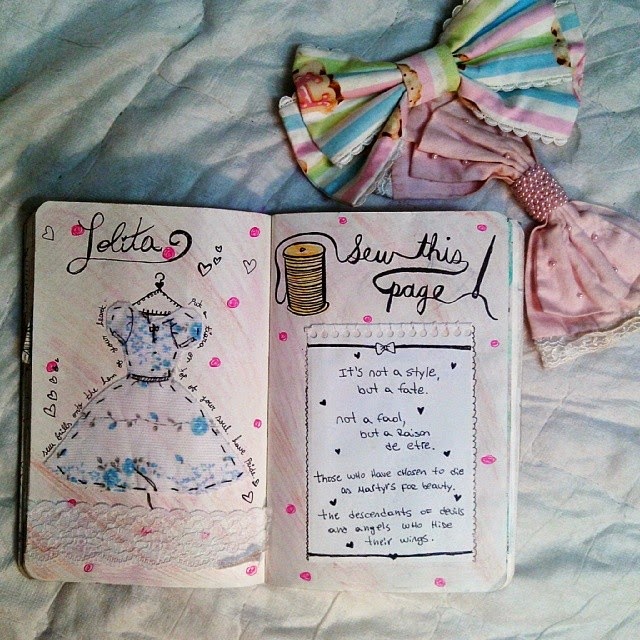 Lolita
sew frills onto the hem of your heart.
Put a
of your soul have
Sew this
page
It's not a style,
but a fate.
not a fad,
but a Raison
de etre.
those who have chosen to die
as Martyrs for beauty.
the descendants of devils
and angels who Hide
their wings.